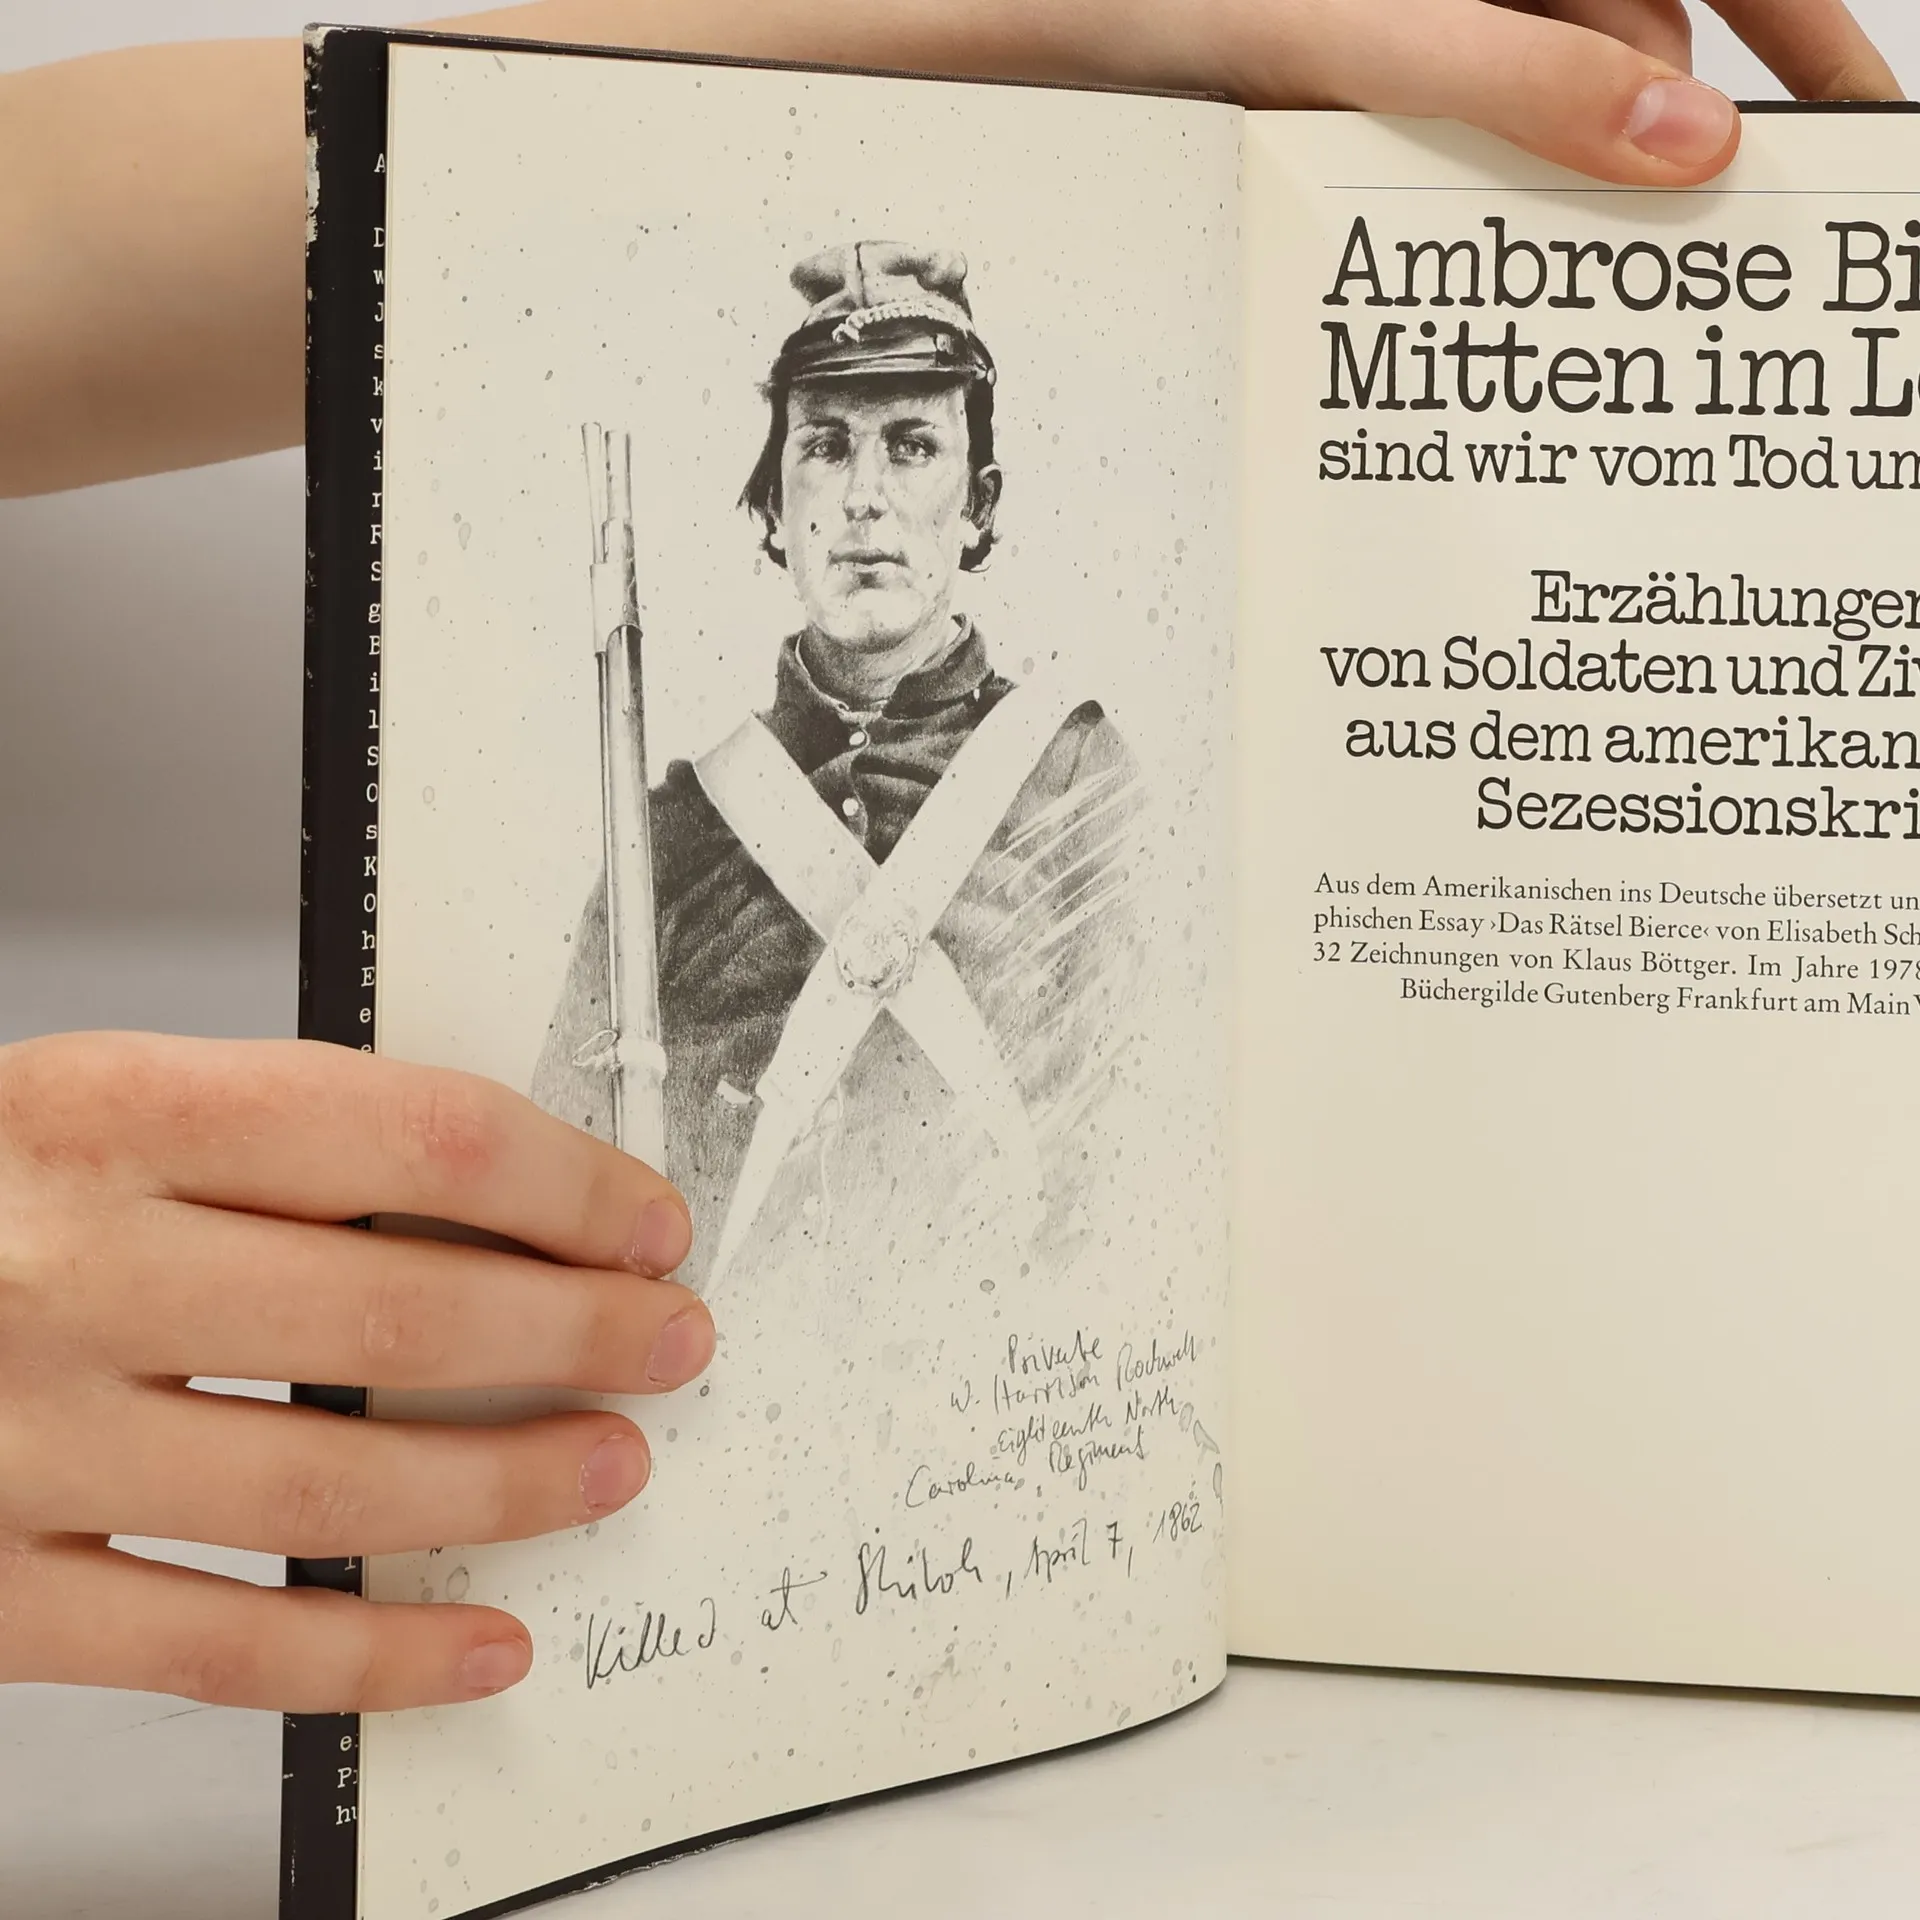 Private
W. Harrison Rockwell
Eighteenth North
Carolina Regiment
Killed at Shiloh, April 7, 1862
Ambrose Bi
Mitten im Le
sind wir vom Tod um
Erzählungen
von Soldaten und Ziv
aus dem amerikan
Sezessionskri
Aus dem Amerikanischen ins Deutsche übersetzt un
phischen Essay ›Das Rätsel Bierce‹ von Elisabeth Sch
32 Zeichnungen von Klaus Böttger. Im Jahre 1978
Büchergilde Gutenberg Frankfurt am Main